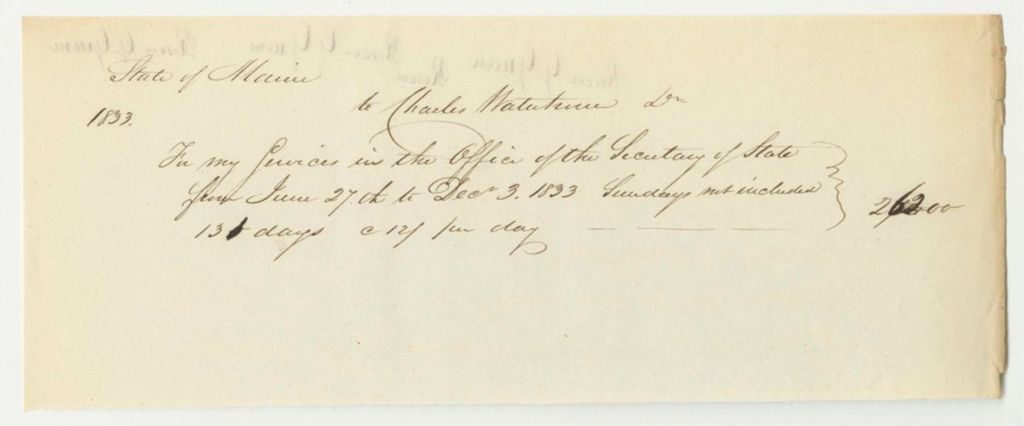 State of Maine
to Charles Waterhouse Dr
1833.
For my Services in the Office of the Secretary of State
from June 27.th to Decr 3. 1833 Sundays not included
131 days @ 12/ per day
262.00